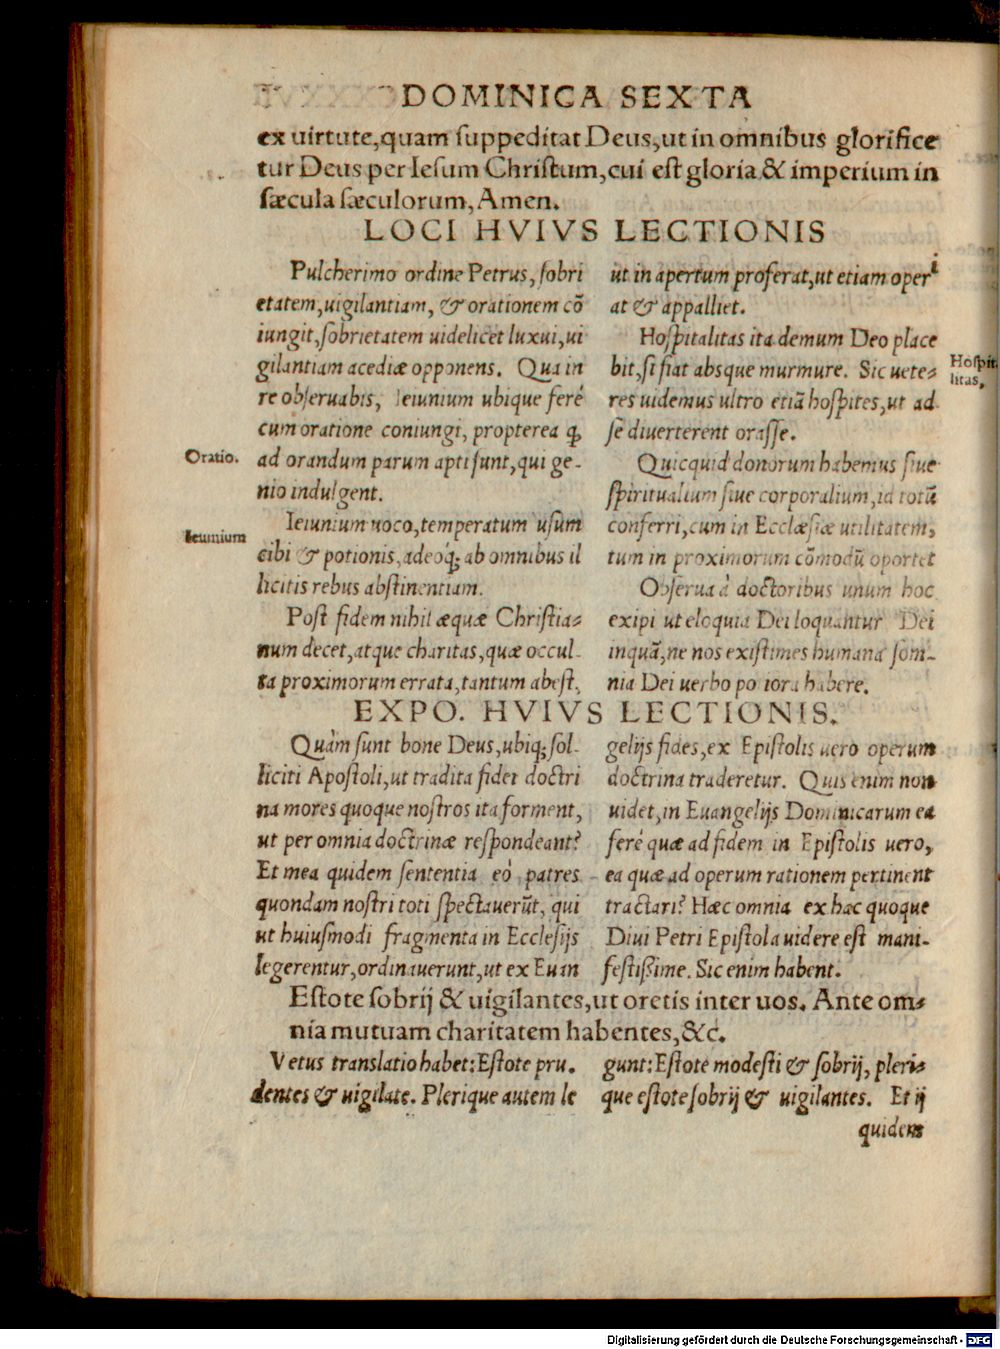 DOMINICA SEXTA
ex uirtute, quam suppeditat Deus, ut in omnibus glorifice
tur Deus per Iesum Christum, cui est gloria & imperium in
sæcula sæculorum, Amen.
LOCI HVIVS LECTIONIS
Pulcherimo ordine Petrus, sobri
etatem, uigilantiam, & orationem cō
iungit, sobrietatem uidelicet luxui, ui
gilantiam acediæ opponens. Qua in
re obseruabis, Ieiunium ubique ferè
cum oratione coniungi, propterea ꝙ
Oratio.
ad orandum parum apti sunt, qui ge-
nio indulgent.
Ieiunium uoco, temperatum usum
Ieiunium
cibi & potionis, adeoq́; ab omnibus il
licitis rebus abstinentiam.
Post fidem nihil æquæ Christia-
num decet, atque charitas, quæ occul-
ta proximorum errata, tantum abest,
ut in apertum proferat, ut etiam operi
at & appalliet.
Hospitalitas ita demum Deo place
bit, si fiat absque murmure. Sic uete-
Hospit
litas.
res uidemus ultro etiā hospites, ut ad
se diuerterent orasse.
Quicquid donorum habemus siue
spiritualium siue corporalium, id totū
conferri, cum in Ecclæsiæ utilitatem,
tum in proximorum cōmodū oportet
Obserua à doctoribus unum hoc
exipi ut eloquia Dei loquantur Dei
inquā, ne nos existimes humana som-
nia Dei uerbo potiora habere.
EXPO. HVIVS LECTIONIS.
Quàm sunt bone Deus, ubiq; sol-
liciti Apostoli, ut tradita fidei doctri
na mores quoque nostros ita forment,
ut per omnia doctrinæ respondeant?
Et mea quidem sententia eò patres
quondam nostri toti spectauerūt, qui
ut huiusmodi fragmenta in Ecclesijs
legerentur, ordinauerunt, ut ex Euan
gelijs fides, ex Epistolis uero operum
doctrina traderetur. Quis enim non
uidet, in Euangelijs Dominicarum ea
ferè quæ ad fidem in Epistolis uero,
ea quæ ad operum rationem pertinent
tractari? Hæc omnia ex hac quoque
Diui Petri Epistola uidere est mani-
festißime. Sic enim habent.
Estote sobrij & uigilantes, ut oretis inter uos. Ante om-
nia mutuam charitatem habentes, &c.
Vetus translatio habet: Estote pru.
dentes & uigilate. Plerique autem le
gunt: Estote modesti & sobrij, pleri-
que estote sobrij & uigilantes. Et ij
quidem
Digitalisierung gefördert durch die Deutsche Forschungsgemeinschaft - DFG